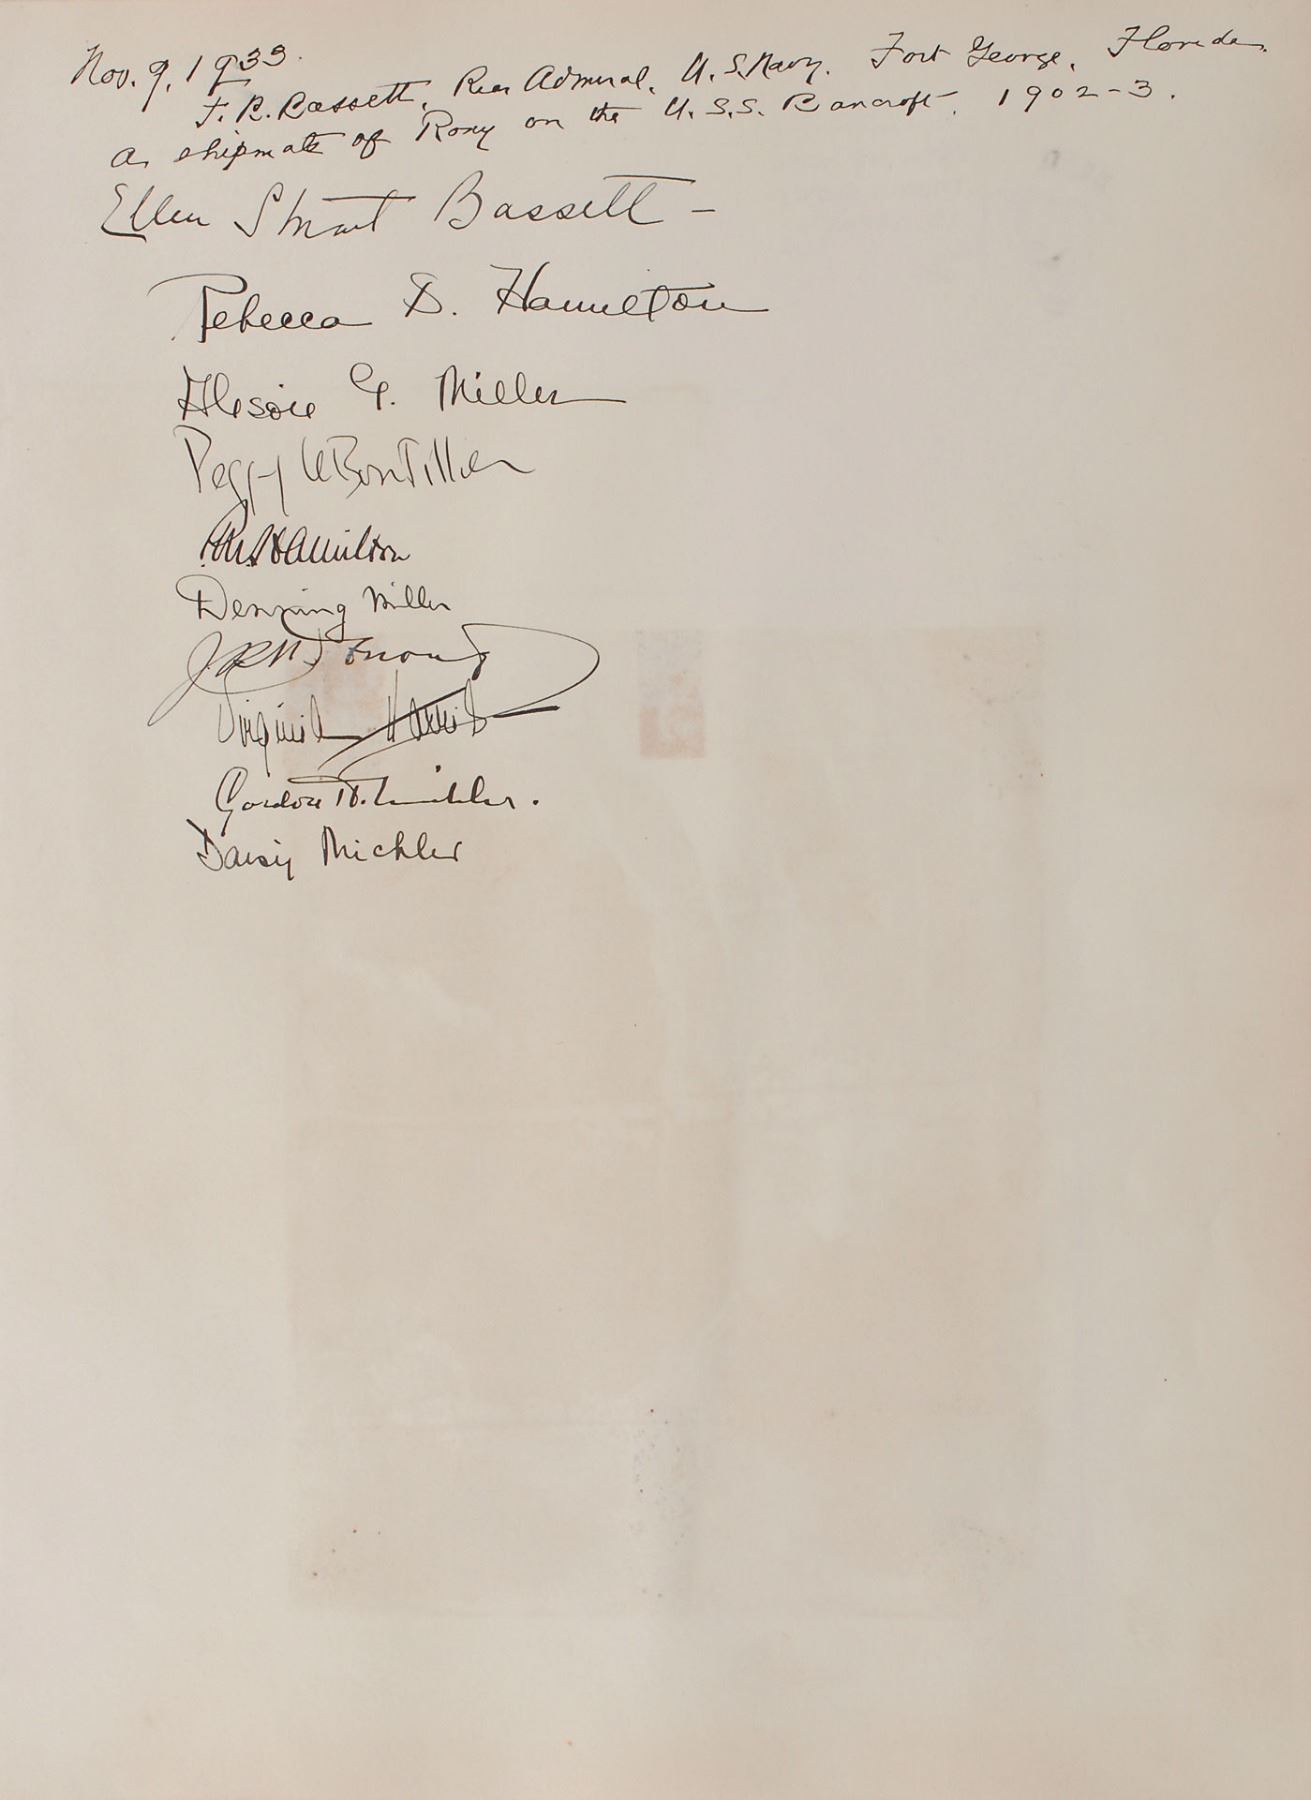 Nov. 9, 1933.
F. B. Bassett, Rear Admiral, U.S. Navy. Fort George, Florida.
A shipmate of Roxy on the U.S.S. Bancroft. 1902-3.
Ellen Stuart Bassett -
Rebecca D. Hamilton
G. Miller
Peggy LeBoutillier
Hamilton
Denning Miller
Virginia
Gordon H. Michler.
Daisy Michler